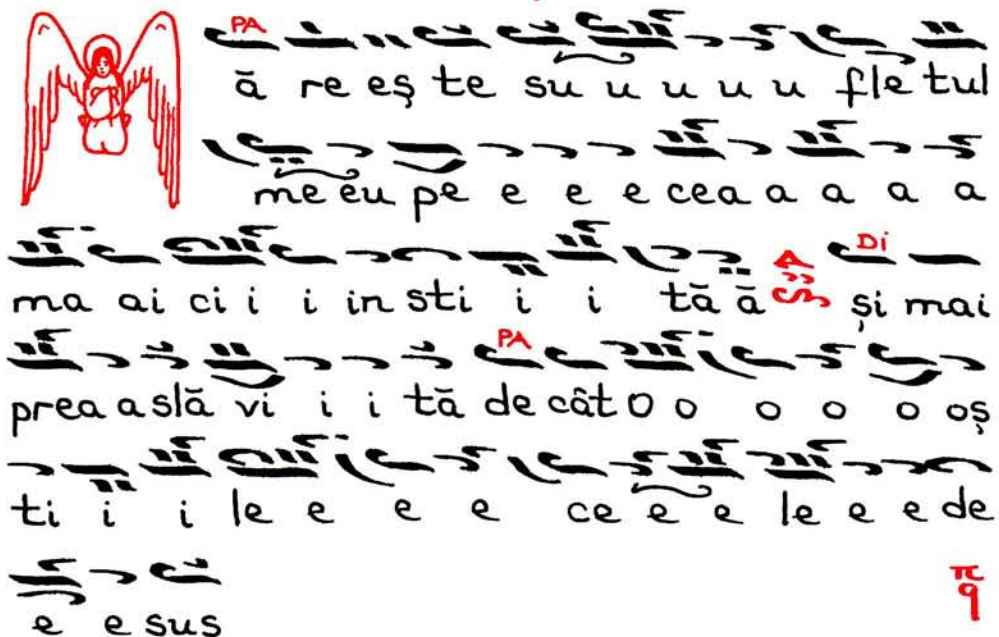 PA
ă re eș te su u u u u fle tul
me eu pe e e e cea a a a a
ma ai ci i i in sti i i tă ă și mai
Di
prea a slă vi i i tă de cât o o o o o oș
PA
ti i i le e e e ce e e le e e de
e e sus
π
q